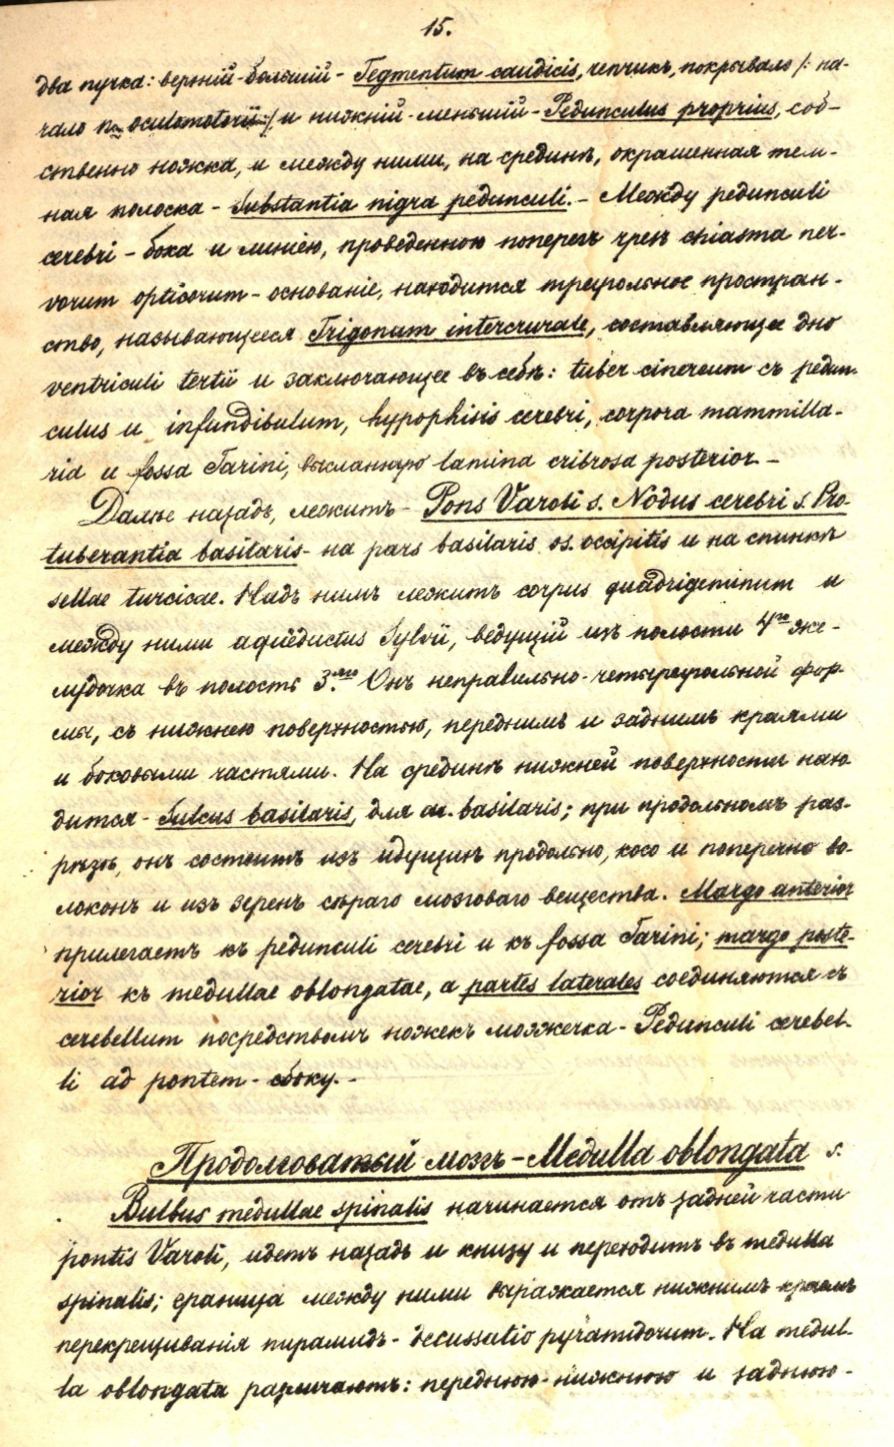 15.
два пучка: верхній-большій - Tegmentum caudicis, чепчикъ, покрывало /: на-
чало n. oculomotorii :/ и нижній-меньшій - Pedunculus proprius, соб-
ственно ножка, и между ними, на срединѣ, окрашенная тем-
ная полоска - Substantia nigra pedunculi. - Между pedunculi
cerebri - бока и линіею, проведенною поперегъ чрезъ chiasma ner-
vorum opticorum - основаніе, находится треугольное простран-
ство, называющееся Trigonum intercrurale, составляющее дно
ventriculi tertii и заключающее въ себѣ: tuber cinereum съ pedun-
culus и infundibulum, hypophisis cerebri, corpora mammilla-
ria и fossa Tarini, высланную lamina cribrosa posterior -
Далѣе назадъ, лежитъ - Pons Varoli s. Nodus cerebri s. Pro-
tuberantia basilaris - на pars basilaris os. occipitis и на спинкѣ
sellae turcicae. Надъ нимъ лежитъ corpus quadrigeminum и
между ними aquaeductus Sylvii, ведущій изъ полости 4го же-
лудочка въ полость 3.го Онъ неправильно-четыреугольной фор-
мы, съ нижнею поверхностью, переднимъ и заднимъ краями
и боковыми частями. На срединѣ нижней поверхности нахо-
дится - Sulcus basilaris, для a. basilaris; при продольномъ раз-
рѣзѣ, онъ состоитъ изъ идущихъ продольно, косо и поперечно во-
локонъ и изъ зеренъ сѣраго мозговаго вещества. Margo anterior
прилегаетъ къ pedunculi cerebri и къ fossa Tarini; margo poste-
rior къ medullae oblongatae, а partes laterales соединяются съ
cerebellum посредствомъ ножекъ мозжечка - Pedunculi cerebel-
li ad pontem - сбоку. -
Продолговатый мозгъ - Medulla oblongata s.
Bulbus medullae spinalis начинается отъ задней части
pontis Varoli, идетъ назадъ и книзу и переходитъ въ medulla
spinalis; граница между ними выражается нижнимъ краемъ
перекрещиванія пирамидъ - decussatio pyramidorum. На medul-
la oblongata различаютъ: переднюю-нижнюю и заднюю-